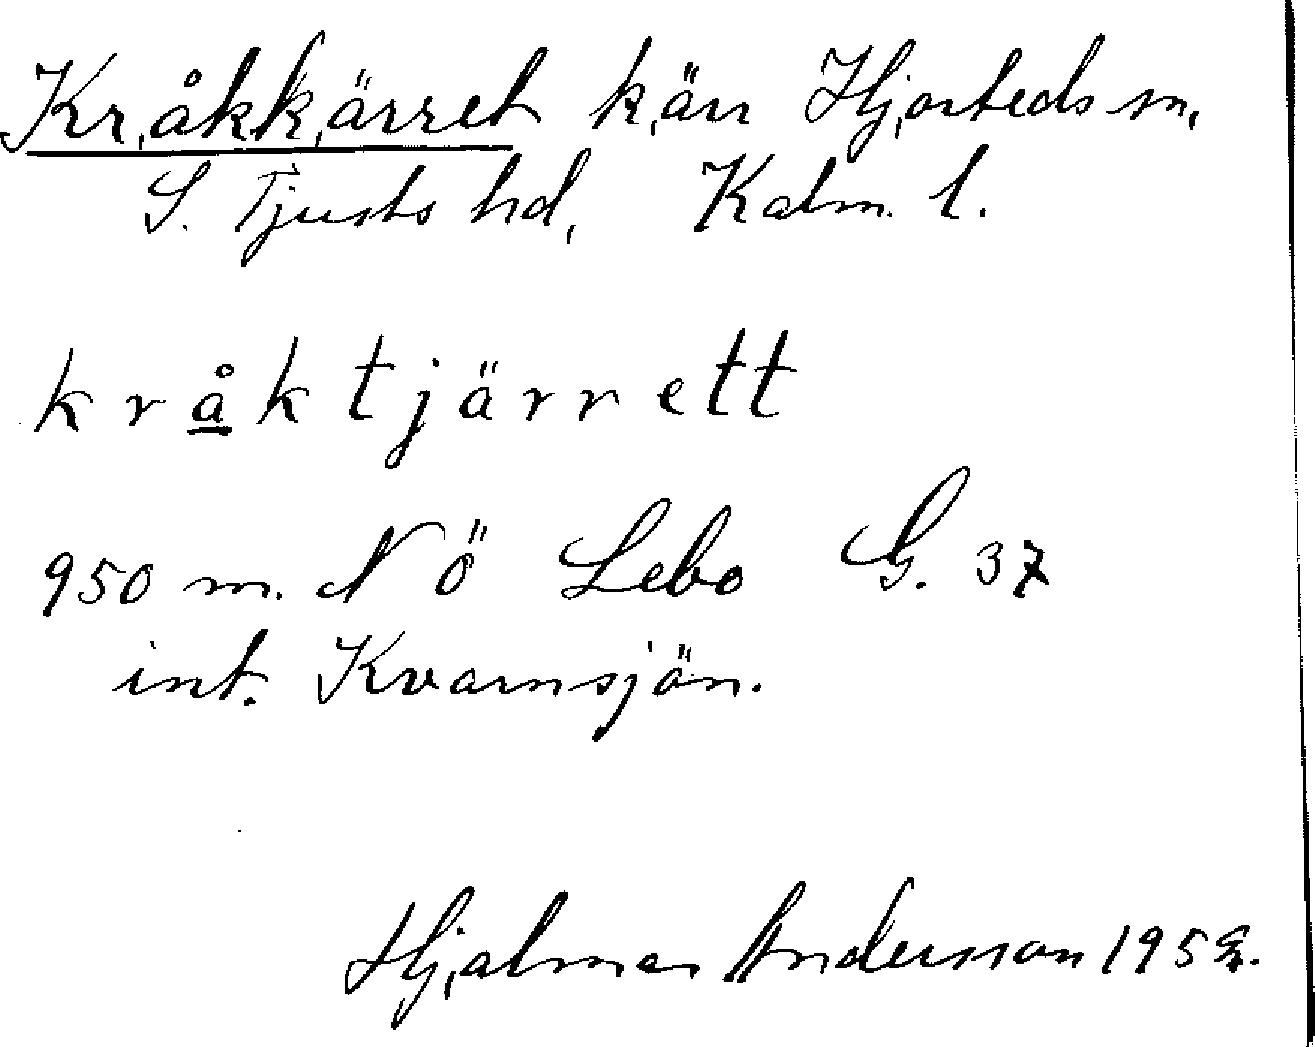 Kråkkärret kärr Hjorteds sn,
S. Tjusts hd, Kalm. l.
kråktjärrett
950 m. NÖ Lebo G. 37
int. Kvarnsjön.
Hjalmar Andersson